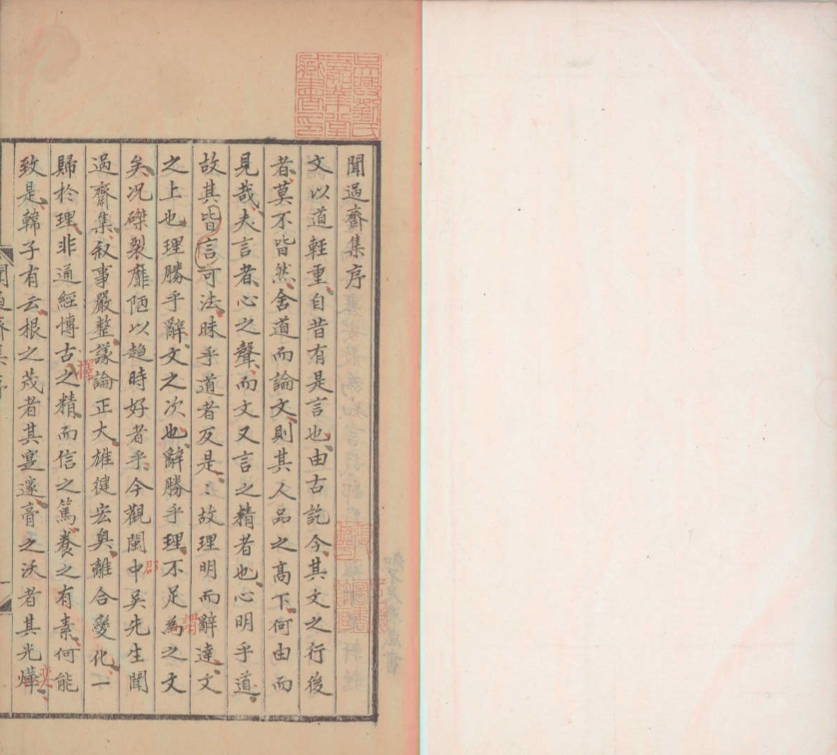 聞過齋集序
文以道輕重自昔有是言也由古訖今其文之行後
者莫不皆然舍道而論文則其人品之高下何由而
見哉夫言者心之聲而文又言之精者也心明乎道
故其皆言可法昧乎道者反是：故理明而辭達文
之上也理勝乎辭文之次也辭勝乎理不足為之文
矣况磔裂靡陋以趍時好者乎今觀閩中吳先生聞
過齋集叙事嚴整議論正大雄健宏奥離合變化一
歸於理非通經博古之精而信之篤養之有素何能
致是韓子有云根之茂者其實遂膏之沃者其光燁
聞過齋集序
吳興劉氏
嘉業堂
藏書印